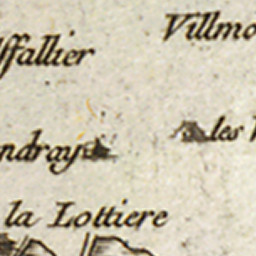 Villmo
ffallier
les
ndray
la Lottiere